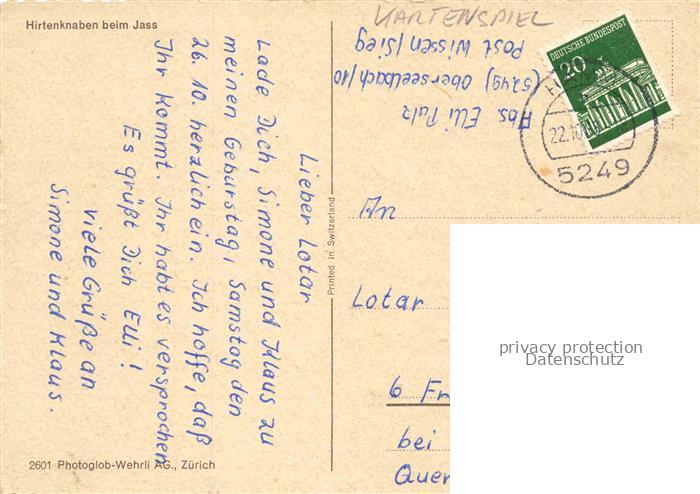 Hirtenknaben beim Jass
Lieber Lotar
Lade Dich, Simone und Klaus zu
meinen Geburstag, Samstag den
26.10. herzlich ein. Ich hoffe, daß
Ihr kommt. Ihr habt es versprochen
Es grüßt Dich Elli!
Viele Grüße an
Simone und Klaus.
2601 Photoglob-Wehrli AG., Zürich
Printed in Switzerland
KARTENSPIEL
Abs. Elli
(5249) Oberseelbach/10
Post Wissen/Sieg
DEUTSCHE BUNDESPOST
20
22.10.
5249
An
Lotar
6 Fr
bei
Quer
privacy protection
Datenschutz